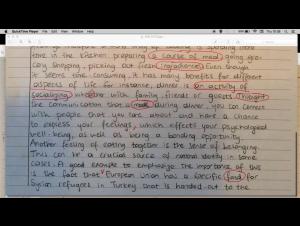 time in the kitchen preparing a course of meal, going gro-
cery shopping, picking out fresh ingredience. Even though
it seems time-consuming, it has many benefits for different
aspects of life. For instance, dinner is an activity of
socializing with family, friends or guests. Through
the communication that made during dinner, you can connect
with people that you care about and have a chance
to express your feelings, which effects your psychological
well-being, as well as being a bonding opportunity.
Another feeling of eating together is the sense of belonging.
This can be a crucial source of national identity in some
cases. A good example to emphasize the importance of this
is the fact that European Union has a specific fund for
Syrian refugees in Turkey that is handed out to the